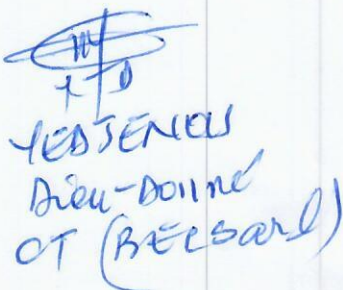 YEDJENOU
Dieu-Donné
CT (BEC Sarl)